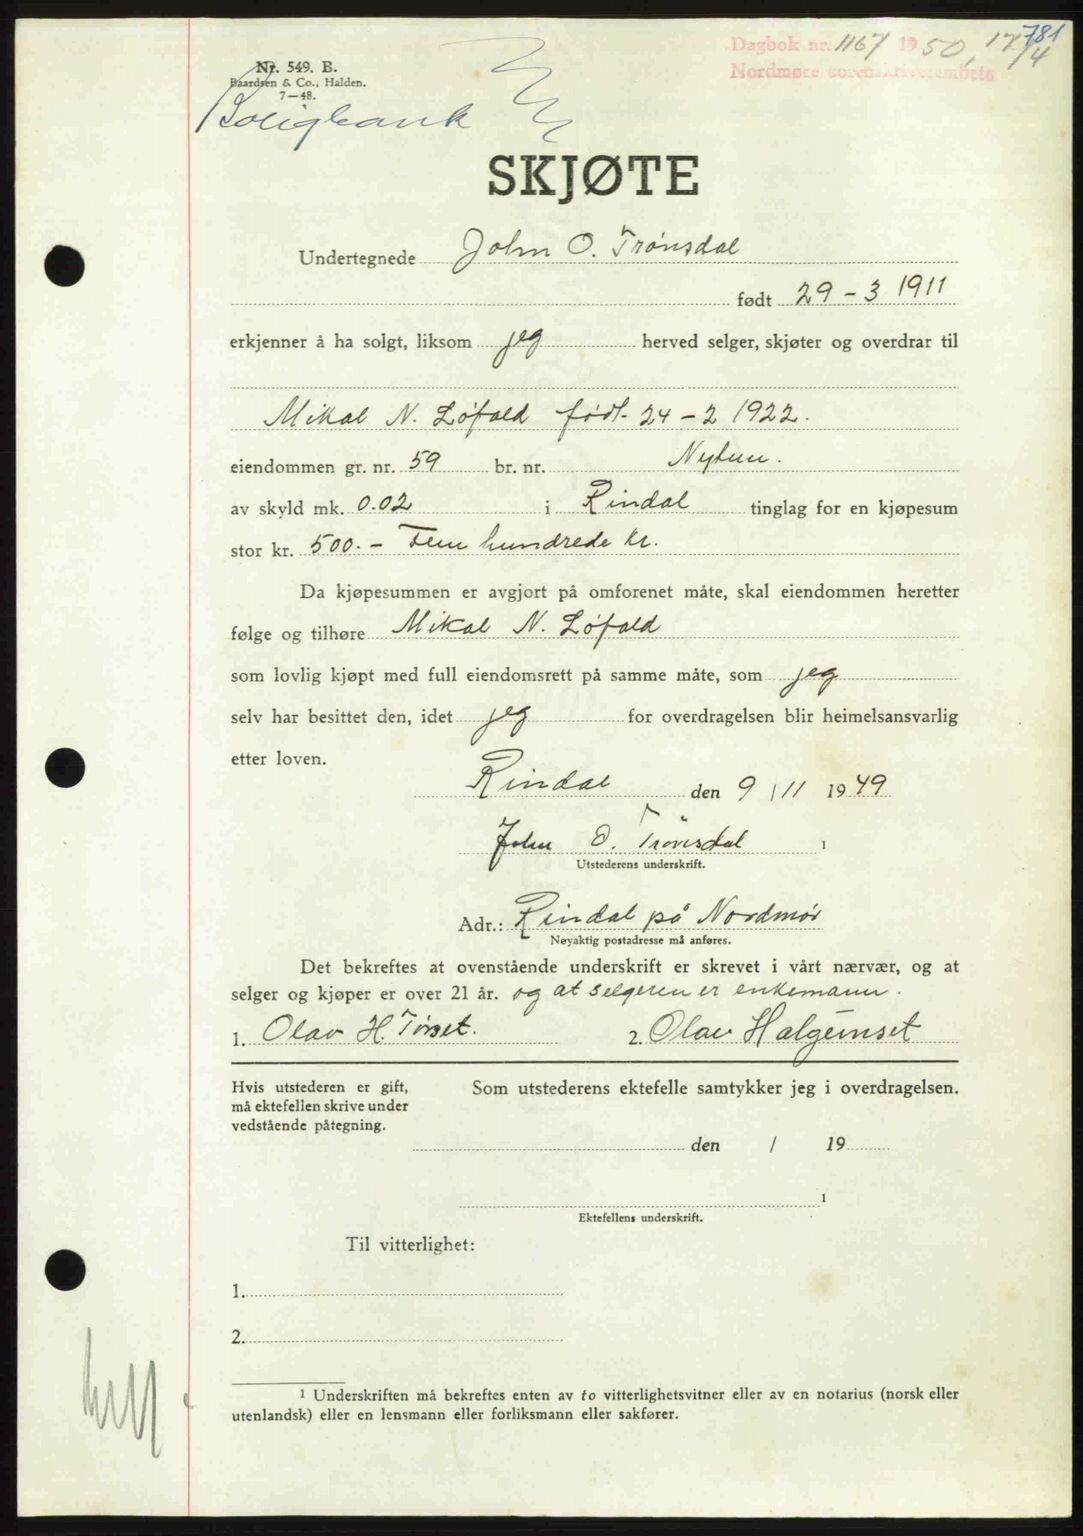 781
Dagbok nr. 1167 1950, 17/4
Nordmøre sorenskriverembete
Nr. 549. B.
Baardsen & Co., Halden.
7—48.
Boligbank
SKJØTE
Undertegnede John O. Trønsdal
født 29 - 3 1911
erkjenner å ha solgt, liksom jeg herved selger, skjøter og overdrar til
Mikal N. Løfald født 24 - 2 1922.
eiendommen gr. nr. 59 br. nr. Nytun.
av skyld mk. 0.02 i Rindal tinglag for en kjøpesum
stor kr. 500.- Fem hundrede kr.
Da kjøpesummen er avgjort på omforenet måte, skal eiendommen heretter
følge og tilhøre Mikal N. Løfald
som lovlig kjøpt med full eiendomsrett på samme måte, som jeg
selv har besittet den, idet jeg for overdragelsen blir heimelsansvarlig
etter loven.
Rindal den 9 / 11 1949
John O. Trønsdal 1
Utstederens underskrift.
Adr.: Rindal på Nordmør
Nøyaktig postadresse må anføres.
Det bekreftes at ovenstående underskrift er skrevet i vårt nærvær, og at
selger og kjøper er over 21 år. og at selgeren er enkemann.
1. Olav H. Tørset. 2. Olav Halgeimset
Hvis utstederen er gift, Som utstederens ektefelle samtykker jeg i overdragelsen.
må ektefellen skrive under
vedstående påtegning.
den / 19
1
Ektefellens underskrift.
Til vitterlighet:
1.
2.
1 Underskriften må bekreftes enten av to vitterlighetsvitner eller av en notarius (norsk eller
utenlandsk) eller en lensmann eller forliksmann eller sakfører.